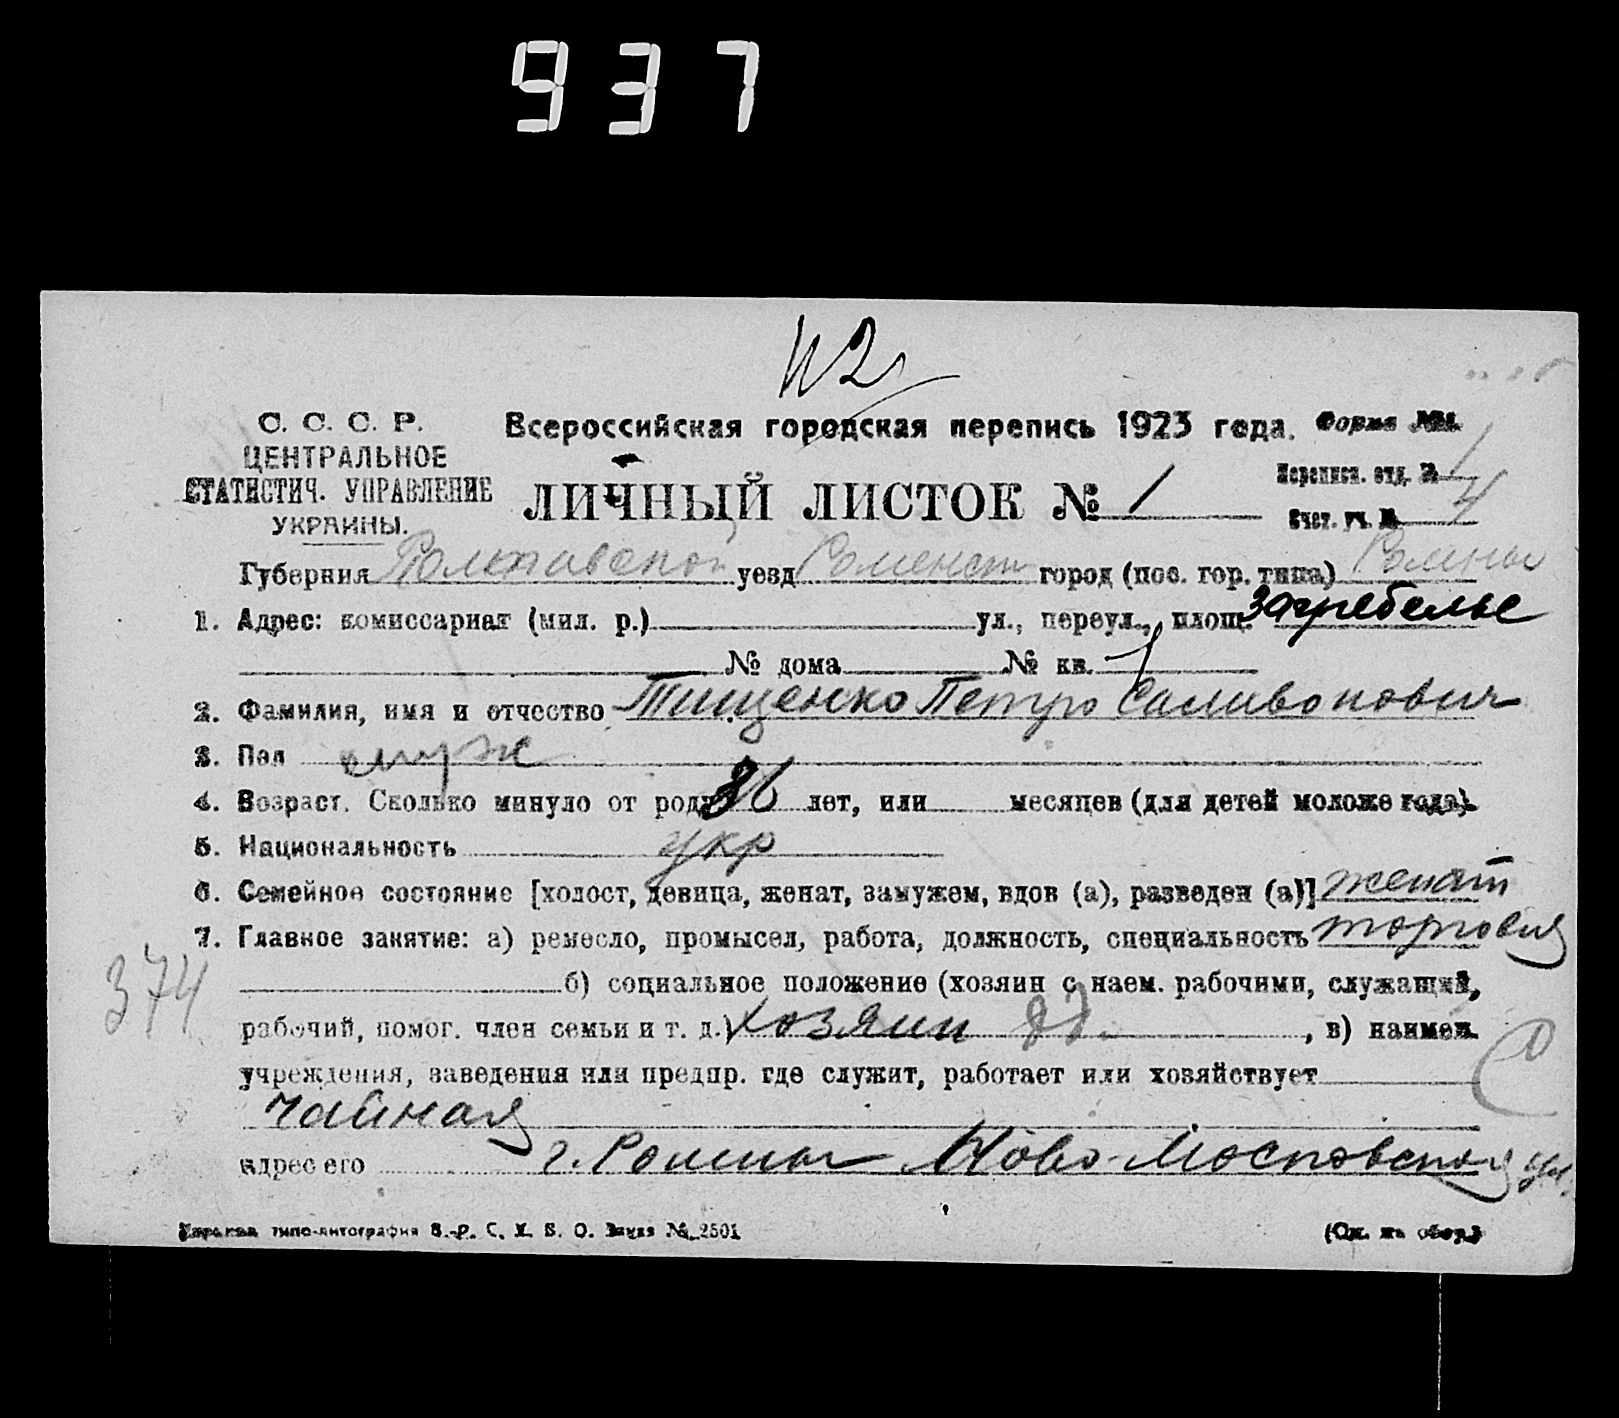 937
N 2
С. С. С. Р.
ЦЕНТРАЛЬНОЕ
СТАТИСТИЧ. УПРАВЛЕНИЕ
УКРАИНЫ.
Всероссийская городская перепись 1923 года.
Форма №1.
ЛИЧНЫЙ ЛИСТОК № 1
Переписн. отд. № 1
Счет. уч. № 4
Губерния Полтавской уезд Роменск город (пос. гор. типа) Ромны
1. Адрес: комиссариат (мил. р.) ул., переул., площ. Загребелье
№ дома № кв. 1
2. Фамилия, имя и отчество Тищенко Петро Саливонович
3. Пол муж
4. Возраст. Сколько минуло от роду 36 лет, или месяцев (для детей моложе года).
5. Национальность укр
6. Семейное состояние [холост, девица, женат, замужем, вдов (а), разведен (а)] женат
7. Главное занятие: а) ремесло, промысел, работа, должность, специальность торговля
374
б) социальное положение (хозяин с наем. рабочими, служащий,
рабочий, помог. член семьи и т. д.) хозяин , в) наимен.
учреждения, заведения или предпр. где служит, работает или хозяйствует
чайная
адрес его г. Ромны Ново-Московская ул.
типо-литография С. Х. Заказ № 2501
(См. на обор.)